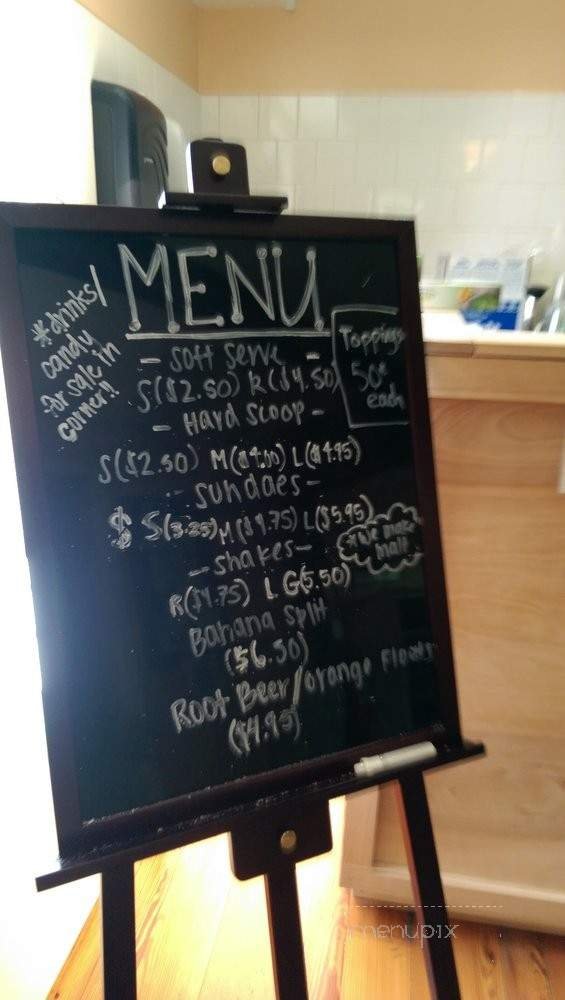 MENU
*drinks/
candy
for sale in
corner!!
Toppings
50¢
each
- soft serve -
S($2.50) R($4.50)
- Hard scoop -
S($2.50) M($4.10) L($4.95)
- sundaes -
$ S(3.25) M($4.75) L($5.95)
- shakes -
*we make
malt
R($4.75) LG(5.50)
Banana split
($6.50)
Root Beer/orange Flower
($4.95)
menupix